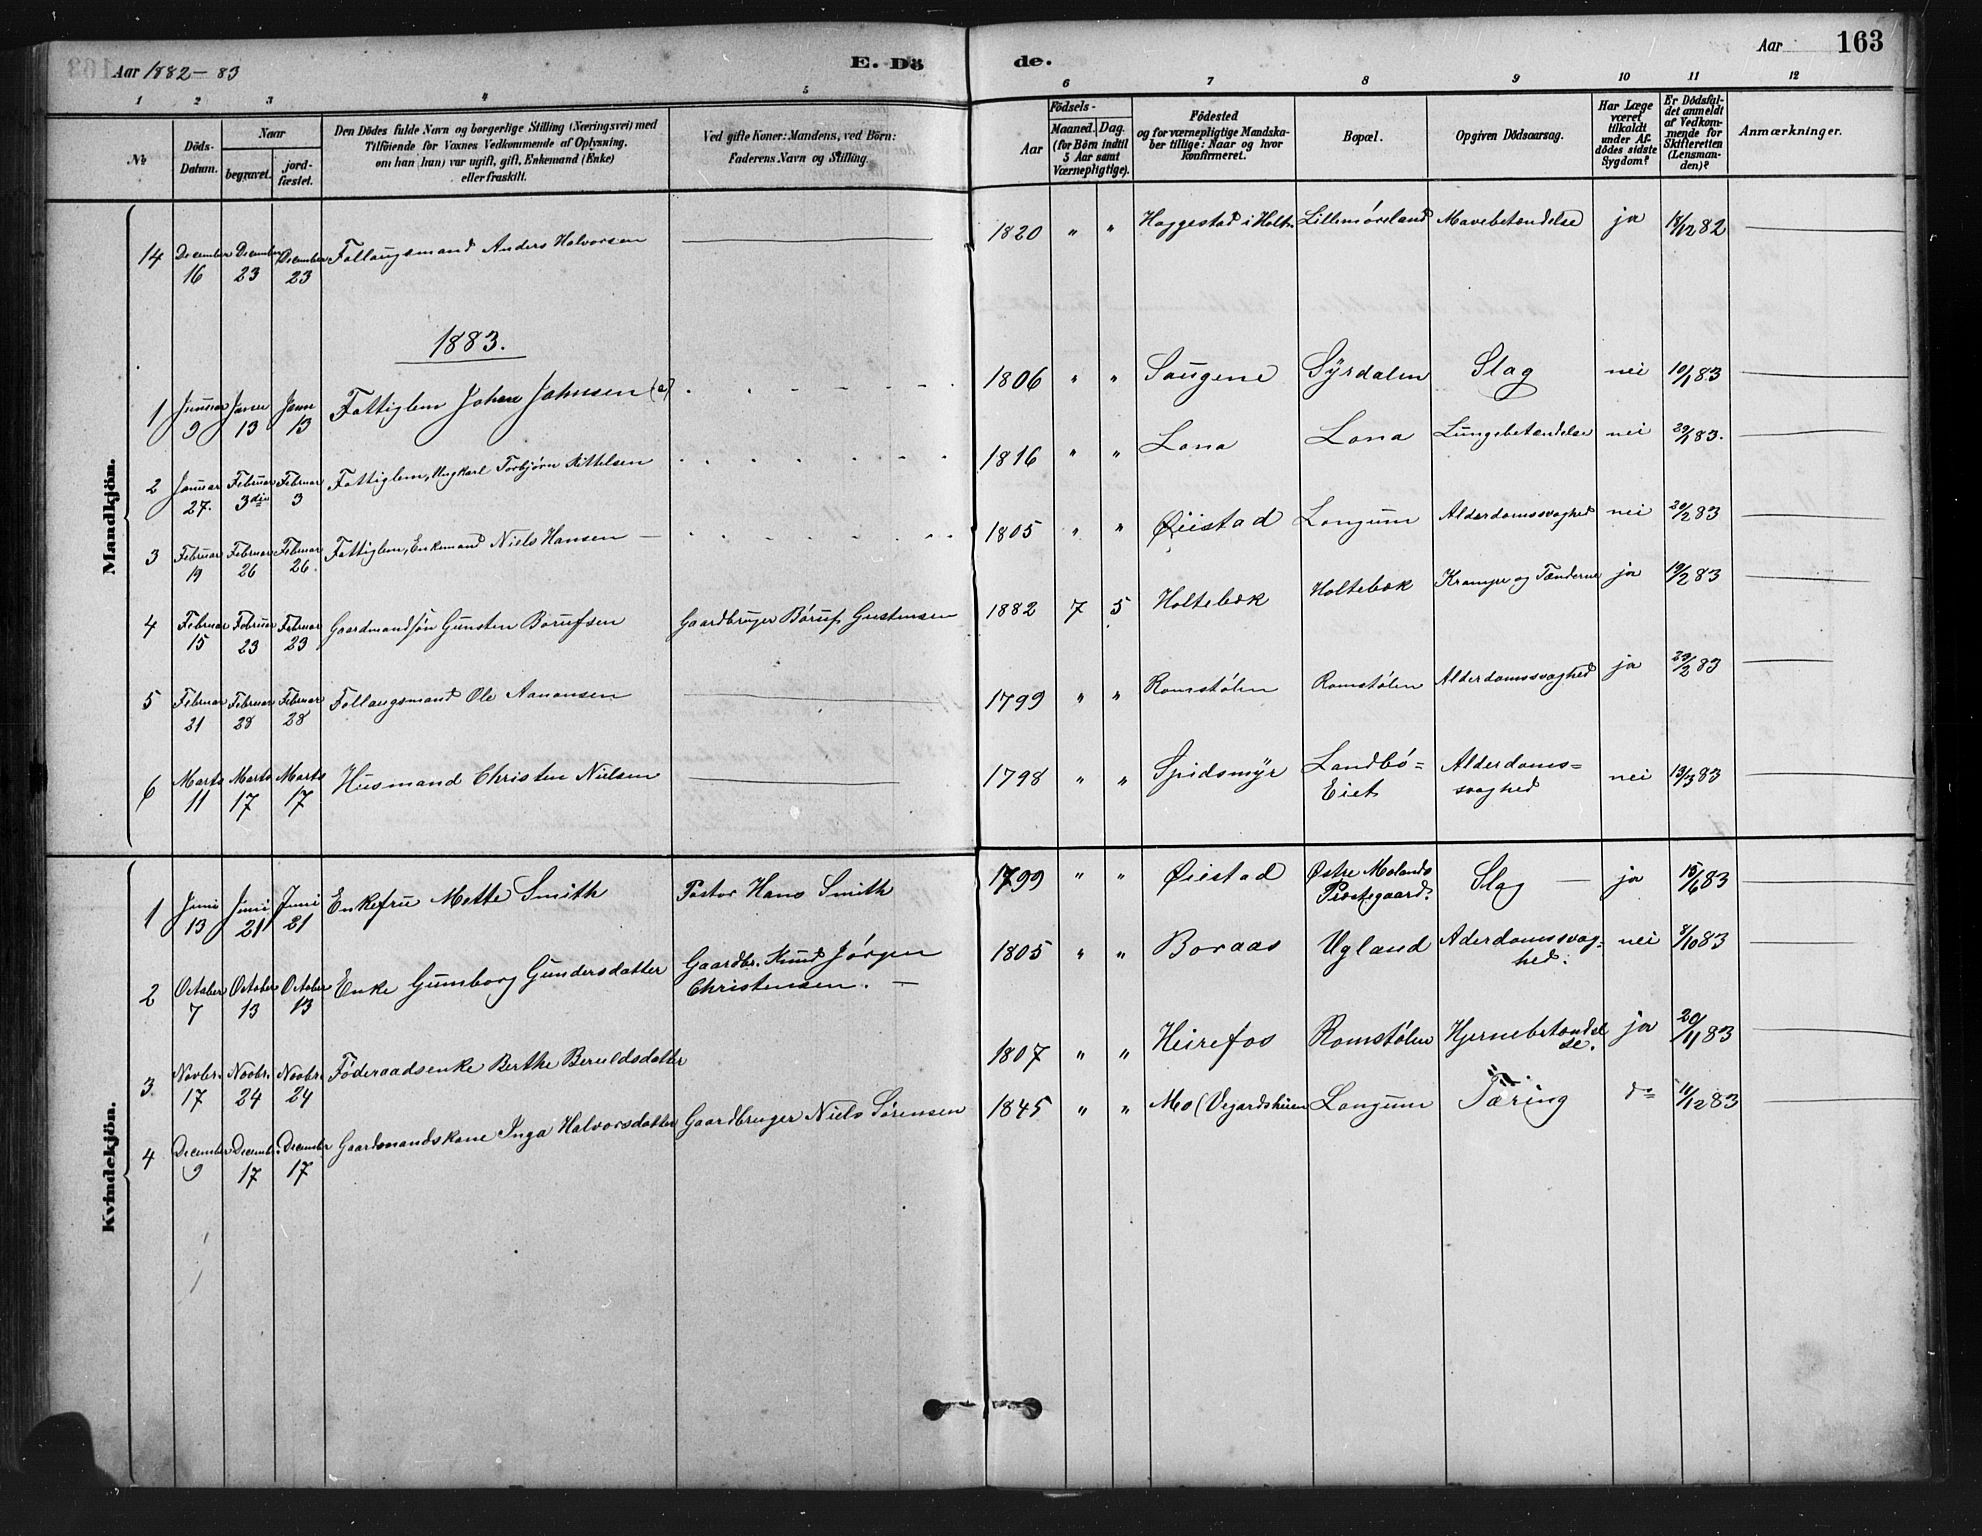 Aar 1882-83
E. Dö
de.
Aar
163
1 2 3 4 5 6 7 8 9 10 11 12
No
Döds-Datum.
Naar
begravet.
jord-fæstet.
Den Dödes fulde Navn og borgerlige Stilling (Næringsvei) med
Tilföiende for Voxnes Vedkommende af Oplysning,
om han (hun) var ugift, gift, Enkemand (Enke)
eller fraskilt.
Ved gifte Koner: Mandens, ved Börn:
Faderens Navn og Stilling.
Födsels-
Aar
Maaned. Dag.
(for Börn indtil
5 Aar samt
Værnepligtige).
Födested
og for værnepligtige Mandska-
ber tillige: Naar og hvor
konfirmeret.
Bopæl.
Opgiven Dödsaarsag.
Har Læge
været
tilkaldt
under Af-
dödes sidste
Sygdom?
Er Dödsfal-
det anmeldt
af Vedkom-
mende for
Skifteretten
(Lensman-
den)?
Anmærkninger.
Mandkjön.
14 December 16 December 23 December 23 Follaugsmand Anders Halvorsen 1820 " " Haggestad i Holt. Lillemøreland Mavebetændelse ja 18/12 82
1883.
1 Januar 9 Janu 13 Janu 13 Fattiglem Johan Johnsen (a) 1806 " " Saugene Syrdalen Slag nei 10/1 83
2 Januar 27. Februar 3die Februar 3 Fattiglem, Ungkarl Torbjørn Kittelsen 1816 " " Lona Lona Lungebetændelse nei 29/1 83.
3 Februar 19 Februar 26 Februar 26. Fattiglem, Enkemand Niels Hansen 1805 " " Øiestad Longum Alderdomssvaghed nei 20/2 83
4 Februar 15 Februar 23 Februar 23 Gaardmandsøn Gunsten Børufsen Gaardbruger Børuf Gustensen 1882 7 5 Holtebæk Holtebæk Krampe og Tænderne ja 19/2 83
5 Februar 21 Februar 28 Februar 28 Follaugsmand Ole Aanonsen 1799 " " Romstølen Romstølen Alderdomssvaghed ja 23/2 83
6 Marts 11 Marts 17 Marts 17 Husmand Christen Nielsen 1798 " " Spidsmyr Landbø= Eiet Alderdoms= svaghed nei 13/3 83
Kvindekjön.
1 Juni 13 Juni 21 Juni 21 Enkefru Mette Smith Pastor Hans Smith 1799 " " Øiestad Østre Molands Prestegaard. Slag ja 15/6 83
2 October 7 October 13 October 13 Enke Gunborg Gundersdatter Gaardbr. Knud Jørgen Christensen. 1805 " " Boraas Ugland Aderdomssvag- hed. nei 8/10 83
3 Novbr. 17 Novbr. 24 Novbr. 24 Føderaadsenke Berthe Beruldsdatter 1807 " " Heirefos Romstølen Hjernebetændel se. ja 20/11 83
4 December 9 Decemb. 17 December 17 Gaardmandskone Inga Halvorsdatter Gaardbruger Niels Sørensen 1845 " " Mo (Vegardsheien Longum Tæring do 11/12 83